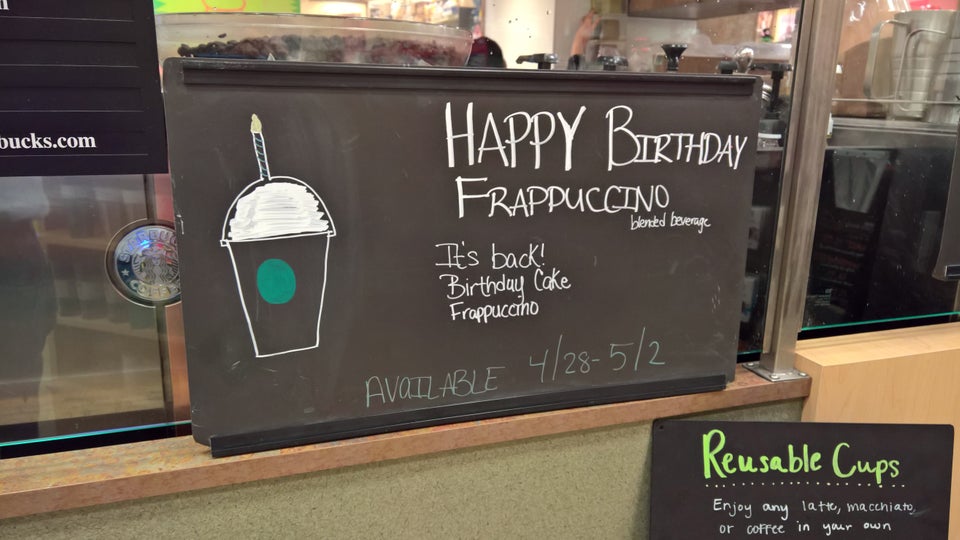 bucks.com
STARBUCKS
COFFEE
HAPPY BIRTHDAY
FRAPPUCCINO
blended beverage
It's back!
Birthday Cake
Frappuccino
AVAILABLE 4/28-5/2
Reusable Cups
Enjoy any latte, macchiato,
or coffee in your own